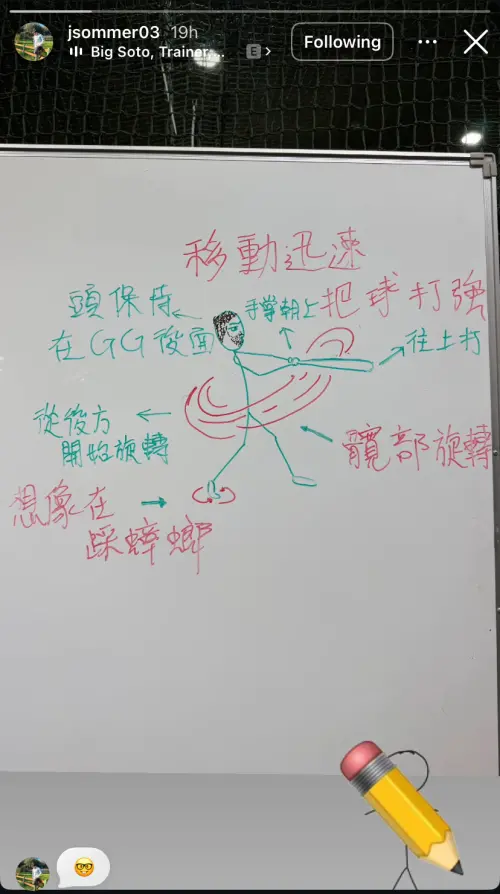 jsommer03 19h
Big Soto, Trainer, ... E
Following
移動迅速
把球打強
頭保持
在GG後面
手掌朝上
往上打
從後方
開始旋轉
髖部旋轉
想像在
踩蟑螂